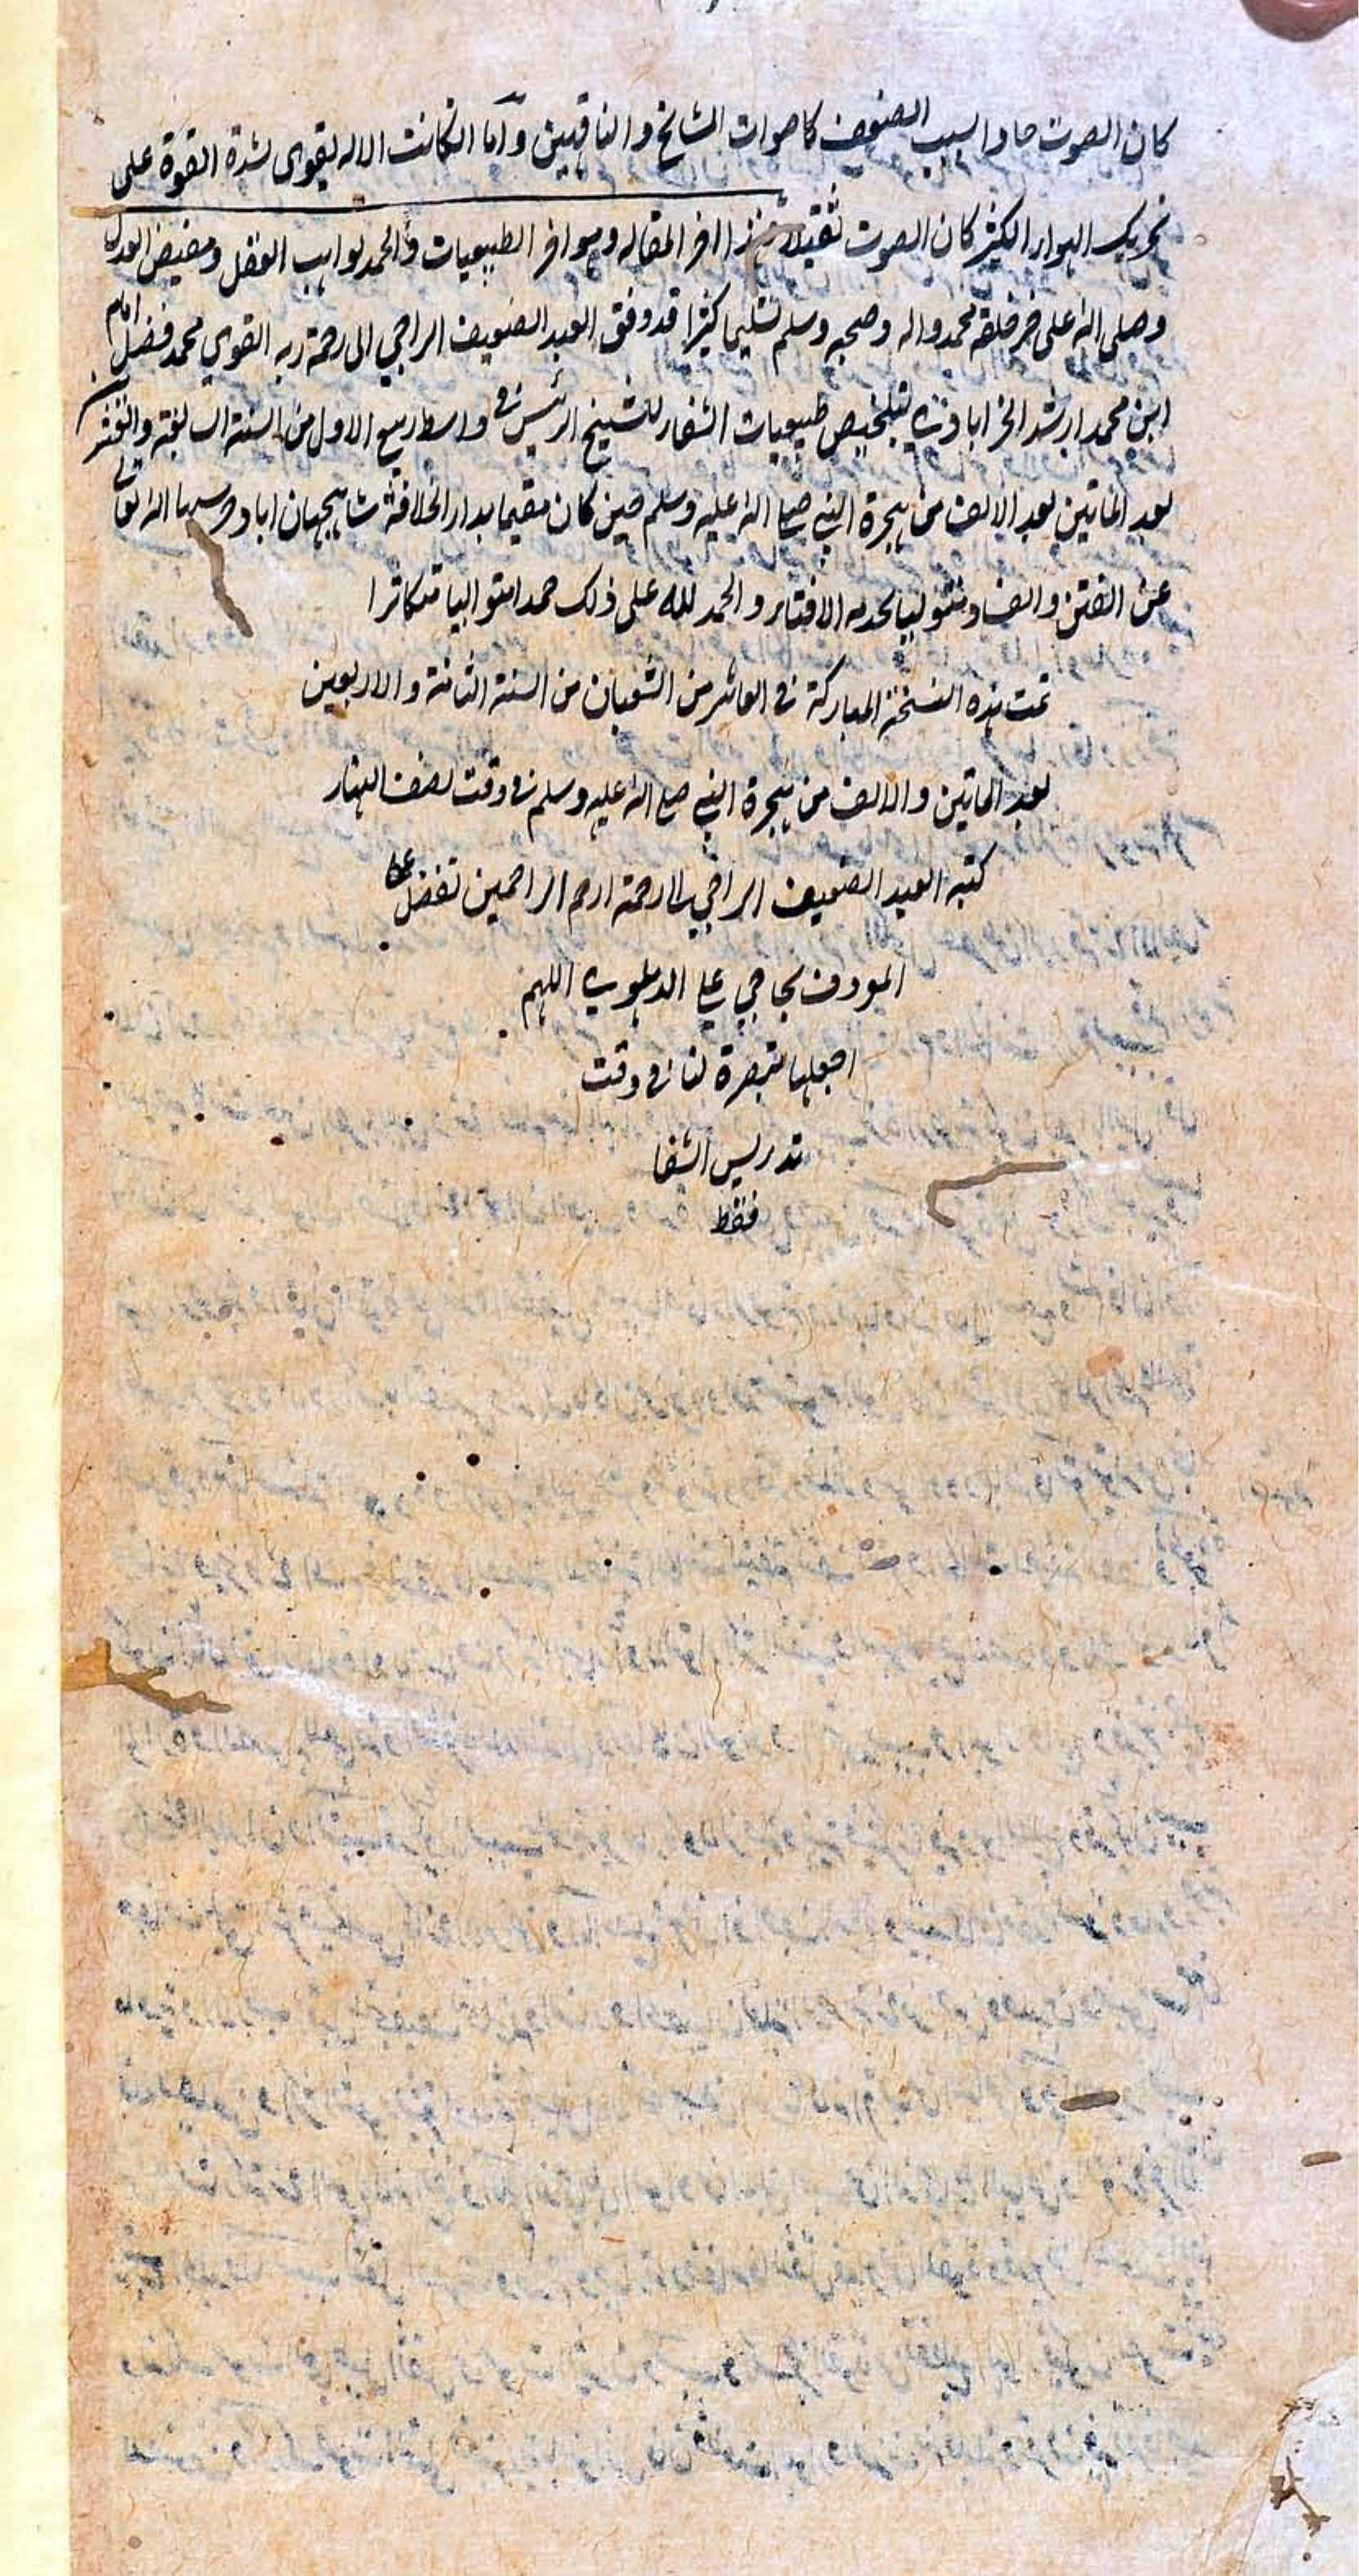 كان الصوت حادا لسبب الضعف كاصوات المشائخ والناقهين واما ان كانت الاله تقوى لشدة القوة على
تحريك الهواء الكثير كان الصوت ثقيلا هذا اخر المقاله وهو اخر الطبيعيات والحمد لواهب العقل ومفيض العدل
وصلى الله على خير خلقه محمد واله وصحبه وسلم تسليما كثيرا قد وفق العبد الضعيف الراجي الى رحمة ربه القوي محمد فضل امام
ابن محمد ارشد الخيرابادي لتلخيص طبيعيات الشفاء للشيخ الرئيس في واسط ربيع الاول من السنة السابعة والعشرين
بعد المأتين بعد الالف من هجرة النبي صلى الله عليه وسلم حين كان مقيما بدار الخلافة شاهجهان اباد حرسها الله تعالى
عن الفتن والفساد والحمد لله على ذلك حمدا متواليا متكاثرا
تمت هذه النسخة المباركة في العاشر من الشعبان من السنة الثامنة والاربعين
بعد المأتين والالف من هجرة النبي صلى الله عليه وسلم في وقت نصف النهار
كتبه العبد الضعيف الراجي الى رحمة ارحم الراحمين تفضل علي
المعروف بحاجي علي الدهلوي اللهم
اجعلها تبصرة لنا في وقت
تدريس الشفا
فقط